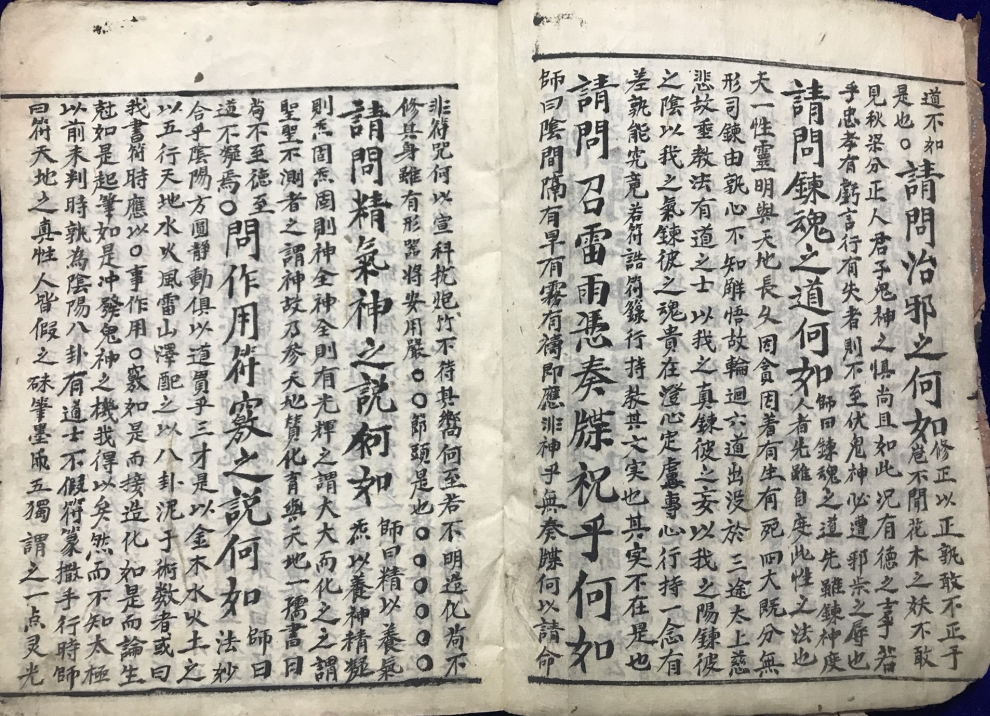 道不如
是也○請問治邪之何如修正以正孰敢不正乎
豈不聞花木之妖不敢
見秋梁分正人君子鬼神之惧尚且如此况有德之事若
乎忠孝有虧言行有失者則不至伏鬼神必遭邪祟之辱也
請問鍊魂之道何如師曰鍊魂之道先雖鍊神度
人者先雖自度此性之法也
天一性靈明與天地長久因貪因著有生有死四大既分無
形司鍊由孰心不知觧悟故輪迴六道出没於三途太上慈
悲故垂教法有道之士以我之真鍊彼之妄以我之陽鍊彼
之陰以我之氣鍊彼之魂貴在澄心定慮專心行持一念有
差孰能究竟若符誥符籙行持教其文实也其实不在是也
請問召雷雨憑奏牒祝乎何如
師曰陰間隔有旱有霧有禱即應非神乎無奏牒何以請命
非符咒何以宣科抚悒竹不待其嚮何至若不明造化尚不
修其身雖有形器將安用嚴○○節頭是也○○○○○○
請問精氣神之説何如師曰精以養氣
炁以养神精凝
則炁固炁固則神全神全則有光輝之謂大大而化之之謂
聖聖不測者之謂神故乃參天地賛化育與天地一孺書曰
尚不至德至
道不凝焉○問作用符竅之説何如師曰
法妙
合乎陰陽方圓静動俱以道貫乎三才是以金木水火土之
以五行天地水火風雷山澤配之以八卦泥于術数者或曰
我書符時應以○事作用○竅如是而接造化如是而論生
尅如是起筆如是冲發鬼神之機我得以矣然而不知太極
以前未判時孰為陰陽八卦有道士不假符篆撒手行時師
曰符天地之真性人皆假之硃筆墨 五獨謂之一点灵光